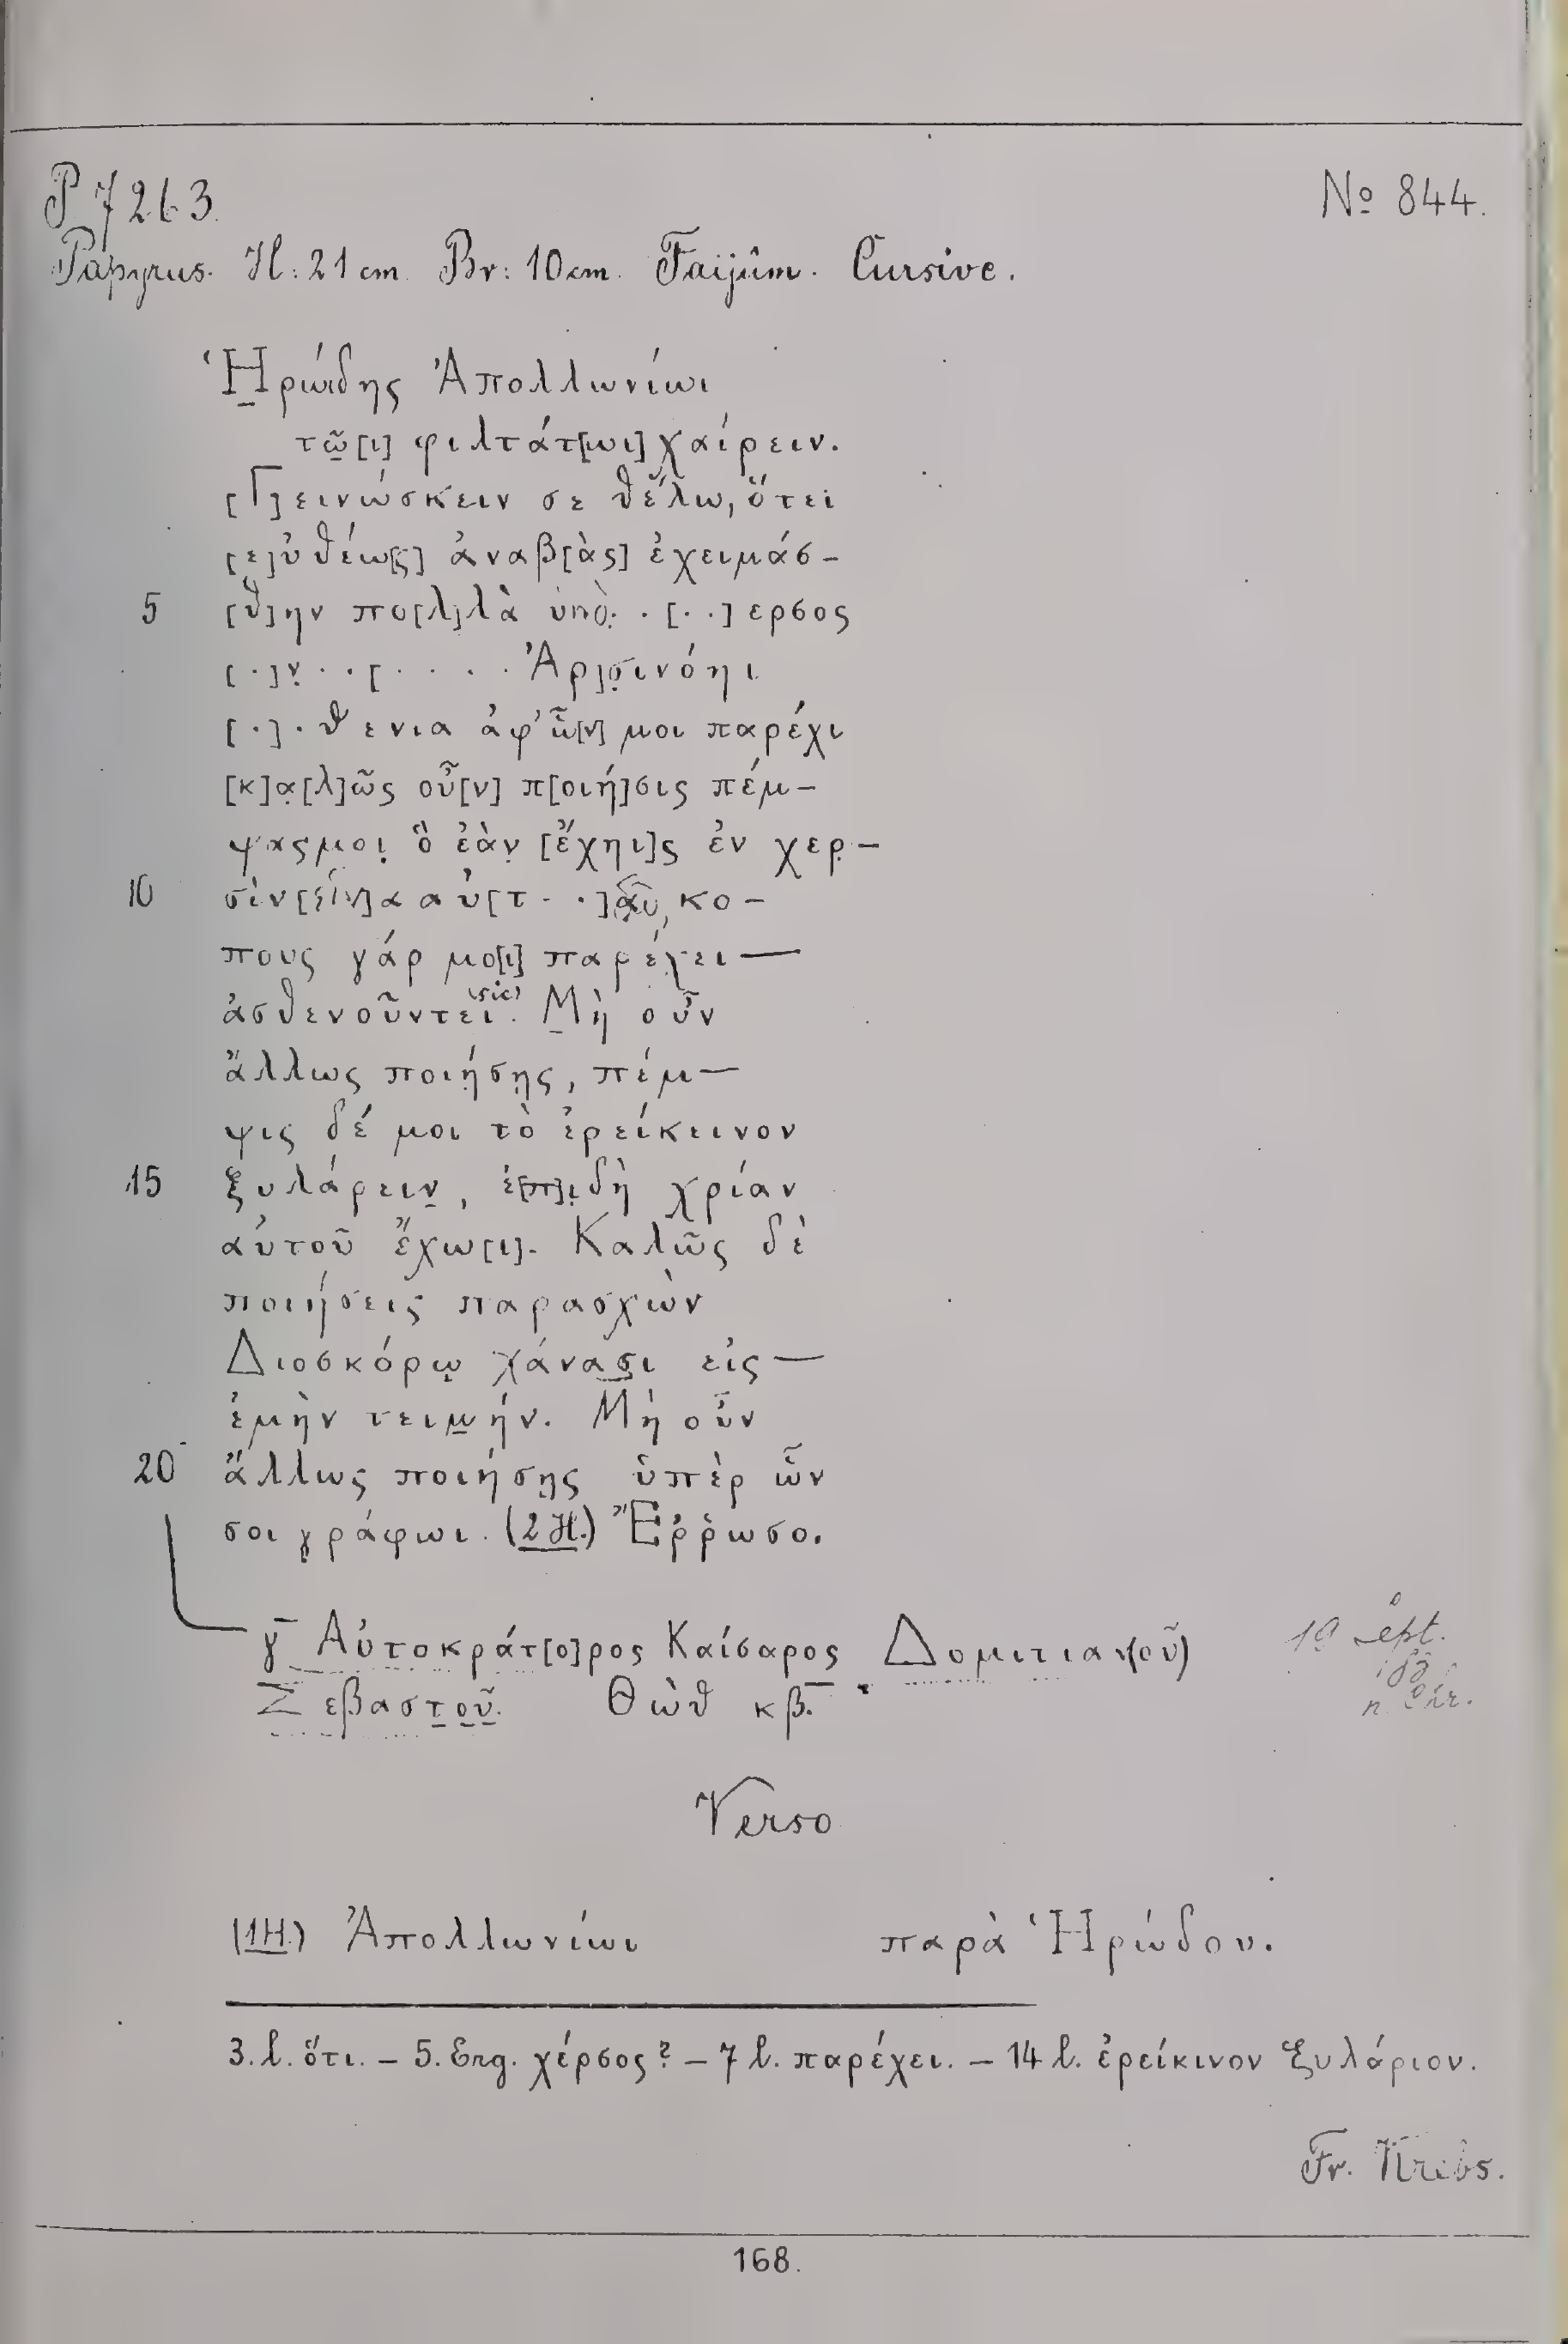 P 7263. No 844.
Papyrus. H: 21 cm. Br: 10 cm. Faijûm. Cursive.
Ἡρώιδης Ἀπολλωνίωι
τῶ[ι] φιλτάτ[ωι] χαίρειν.
[Γ]εινώσκειν σε θέλω, ὅτει
[ε]ὐθέω[ς] ἀναβ[ὰς] ἐχειμάσ-
5 [θ]ην πο[λ]λὰ ὑπὸ . . [. .] ερσος
[.]ν̣ . . [. . . . Ἀρ]σ̣ινόηι
[.] . θενια ἀφ’ ὧ[ν] μοι παρέχι
[κ]α̣[λ]ῶς οὖ[ν] π[οιή]σις πέμ-
ψας μοι̣ ὃ ἐὰν̣ [ἔχηι]ς ἐν χερ̣-
10 σὶν αὐ[τ . .] κο-
πους γάρ μο[ι] παρέχει
ἀσθενοῦντει (sic). Μὴ οὖν
ἄλλως ποιή̣σῃς, πέμ-
ψις δέ μοι τὸ ἐρείκεινον
15 ξυλάρειν̣, ἐ[π]ι̣δὴ χρίαν
αὐτοῦ ἔχω[ι]. Καλῶς δὲ
ποιήσεις παρασχὼν
Διοσκόρῳ χάνασ̣ι εἰς
ἐμὴν τειμ̣ήν. Μὴ οὖν
20 ἄλλως ποιήσῃς ὑπὲρ ὧν
σοι γράφωι. (2 H.) Ἔῤῥωσο.
γ̅ Αὐτοκράτ[ο]ρος Καίσαρος Δομιτιαν(οῦ)
Σεβαστ̣ο̣ῦ̣. Θὼθ κβ̅.
19 Sept.
n. Chr.
Verso
(1 H.) Ἀπολλωνίωι παρὰ Ἡρώδου.
3. l. ὅτι. – 5. Erg. χέρσος? – 7 l. παρέχει. – 14 l. ἐρείκινον ξυλάριον.
Fr. Krebs.
168.